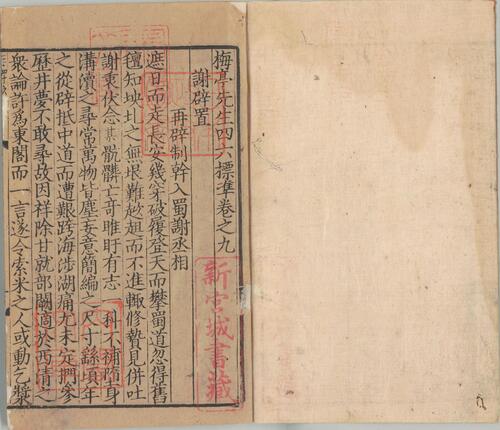 梅亭先生四六標準卷之九
謝辟置
再辟制幹入蜀謝丞相
遮日而走長安幾穿破履登天而攀蜀道忽得舊
氊知坱圠之無垠難趑趄而不進輙修贄見併吐
謝衷伏念某骯髒亡奇睢盱有志一科不補隨身
溝瀆之尋常萬物皆塵妄意簡編之尺寸繇頃年
之從辟抵中道而遭艱跨海涉湖痛尤未定捫參
歷井夢不敢尋故因祥除甘就部闕適於西清之
衆論許爲東閣而一言遂令索米之人或動乞漿
新宮城書藏